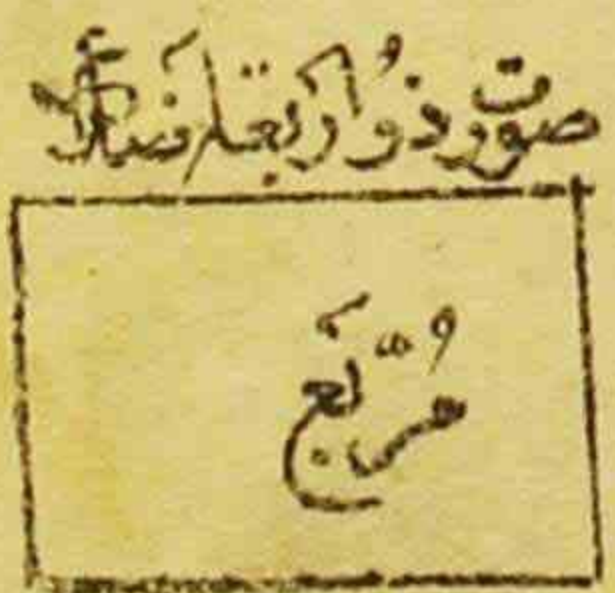 صورت ذُو اربعة اَضلاع
مُربَّع